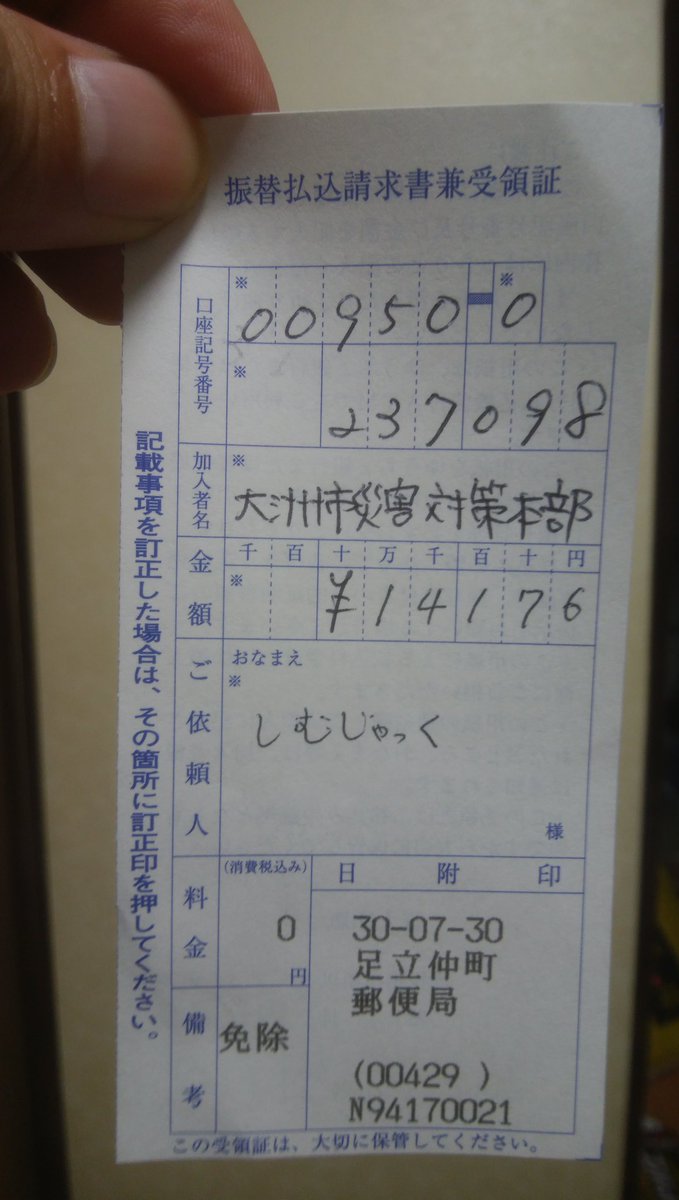 振替払込請求書兼受領証
口座記号番号
※ 00950-※0
※ 237098
加入者名
※
大洲市災害対策本部
金額
千 百 十 万 千 百 十 円
※ ¥14176
ご依頼人
おなまえ
※
しむじゃっく
様
料金
(消費税込み)
0
円
日附印
30-07-30
足立仲町
郵便局
(00429 )
N94170021
備考
免除
記載事項を訂正した場合は、その箇所に訂正印を押してください。
この受領証は、大切に保管してください。